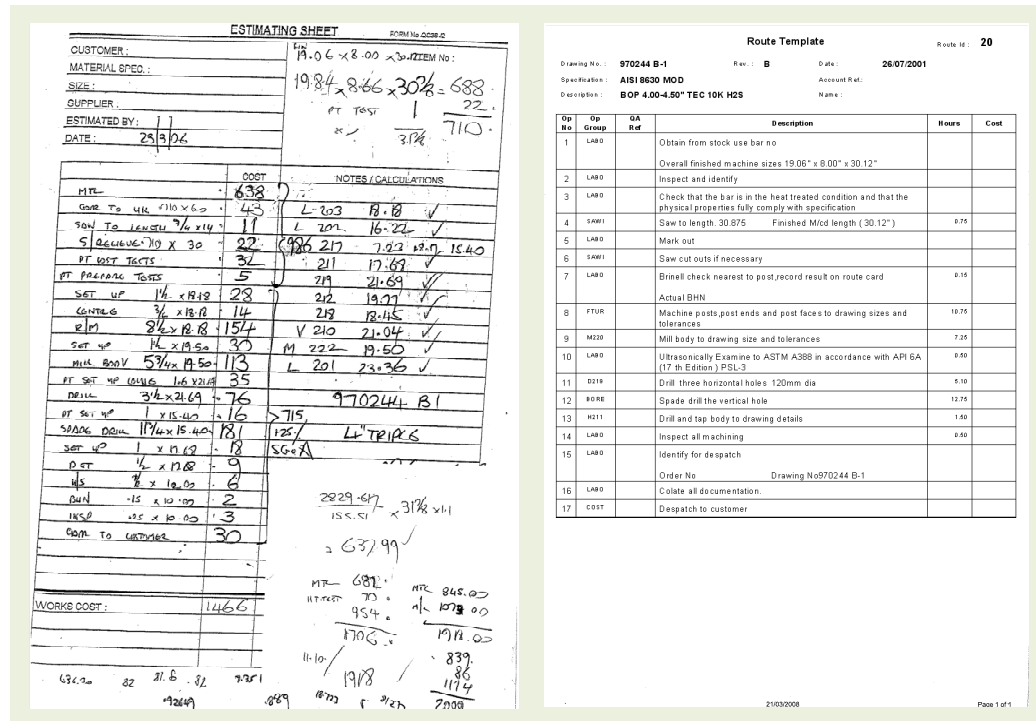 ESTIMATING SHEET
FORM No
CUSTOMER :
19.06 x 8.00 x 30.12
ITEM No :
MATERIAL SPEC. :
SIZE :
19.84 x 8.66 x 30⅞ = 688
SUPPLIER :
PT TEST 1 22.
ESTIMATED BY :
710.
DATE : 23/3/06
COST
NOTES / CALCULATIONS
MTL 638
43
L-203 18.18 ✓
SAW TO LENGTH 9/4 x 14 11
L 202 16.22 ✓
S/RELIEVE 710 x 30 22
217 7.23 15.40
PT COST TESTS 32
211 17.68 ✓
PT PREPARE TESTS 5
219 21.69 ✓
SET UP 1½ x 18.18 28
212 19.77 ✓
CENTRES ¾ x 18.18 14
218 18.45 ✓
R/M 8½ x 18.18 154
V 210 21.04 ✓
SET UP 1½ x 19.50 30
M 222 19.50 ✓
MILL BODY 5¾ x 19.50 113
L 201 23.36 ✓
PT SET UP 1.6 x 21.69 35
DRILL 3½ x 21.69 76
970244 B1
PT SET UP 1 x 15.40 16
715
SPADE DRILL 11¾ x 15.40 181
+25/
4" TRIPLE
SET UP 1 x 17.68 18
D&T ½ x 17.68 9
U/S 6
BHN .15 x 10.00 2
INSP .25 x 10.00 3
CARR TO CUSTOMER 30
2829.617
155.51 x 31⅞ x 1.1
= 637.99 ✓
MTL 682.
MTL 845.00
HT.TEST 70.
954.
1706.
1918.00
WORKS COST : 1466
839.
11.10.
1918
86
1174
636.00 82 81.8 .82 9.351
.92649
2099
Route Template
Route Id : 20
Drawing No. : 970244 B-1 Rev. : B Date : 26/07/2001
Specification : AISI 8630 MOD Account Ref.:
Description : BOP 4.00-4.50" TEC 10K H2S Name :
Op No Op Group QA Ref Description Hours Cost
1 LABO Obtain from stock use bar no
Overall finished machine sizes 19.06" x 8.00" x 30.12"
2 LABO Inspect and identify
3 LABO Check that the bar is in the heat treated condition and that the
physical properties fully comply with specification
4 SAWI Saw to length. 30.875 Finished M/cd length ( 30.12" ) 0.75
5 LABO Mark out
6 SAWI Saw cut outs if necessary
7 LABO Brinell check nearest to post,record result on route card 0.15
Actual BHN
8 FTUR Machine posts,post ends and post faces to drawing sizes and 10.75
tolerances
9 M220 Mill body to drawing size and tolerances 7.25
10 LABO Ultrasonically Examine to ASTM A388 in accordance with API 6A 0.50
(17 th Edition ) PSL-3
11 D218 Drill three horizontal holes 120mm dia 5.10
12 BORE Spade drill the vertical hole 12.75
13 H211 Drill and tap body to drawing details 1.50
14 LABO Inspect all machining 0.50
15 LABO Identify for despatch
Order No Drawing No970244 B-1
16 LABO Colate all documentation.
17 COST Despatch to customer
21/03/2008
Page 1 of 1